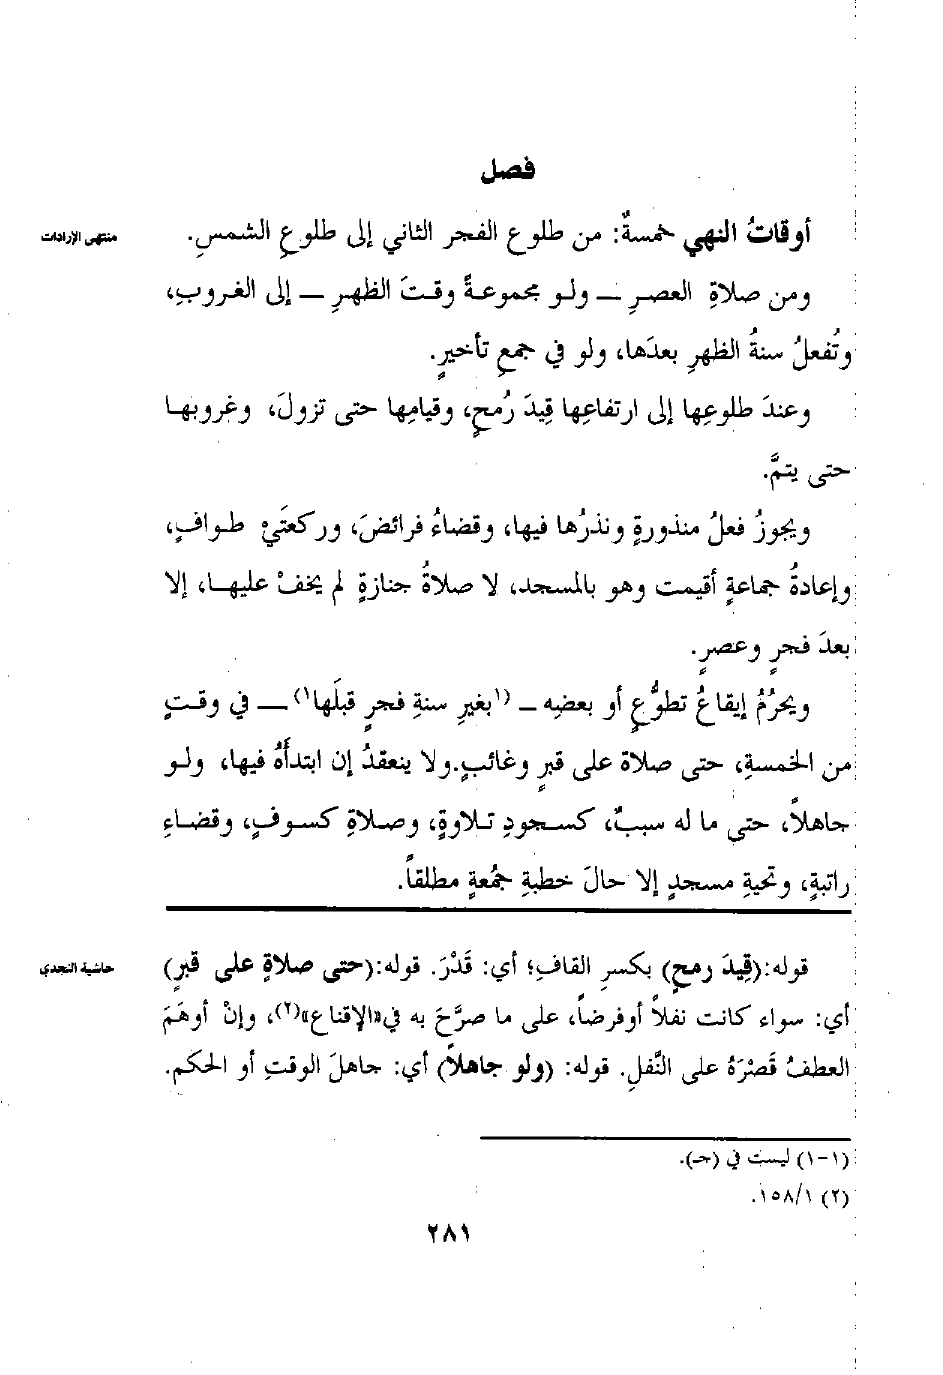 فصل
منتهى الإرادات
أوقاتُ النهي خمسةٌ: من طلوع الفجر الثاني إلى طلوعِ الشمسِ.
ومن صلاةِ العصرِ – ولو مجموعةً وقتَ الظهرِ – إلى الغروبِ،
وتُفعلُ سنةُ الظهرِ بعدَها، ولو في جمعِ تأخيرٍ.
وعندَ طلوعِها إلى ارتفاعِها قِيدَ رُمحٍ، وقيامِها حتى تزولَ، وغروبها
حتى يتمَّ.
ويجوزُ فعلُ منذورةٍ ونذرُها فيها، وقضاءُ فرائضَ، وركعتَيْ طوافٍ،
وإعادةُ جماعةٍ أقيمت وهو بالمسجد، لا صلاةُ جنازةٍ لم يخفْ عليها، إلا
بعدَ فجرٍ وعصرٍ.
ويحرُمُ إيقاعُ تطوُّعٍ أو بعضِه – (١بغيرِ سنةِ فجرٍ قبلَها١) – في وقتٍ
من الخمسةِ، حتى صلاة على قبرٍ وغائبٍ.ولا ينعقدُ إن ابتدأَهُ فيها، ولو
جاهلاً، حتى ما له سببٌ، كسجودِ تلاوةٍ، وصلاةِ كسوفٍ، وقضاءِ
راتبةٍ، وتحيةِ مسجدٍ إلا حالَ خطبةِ جمُعةٍ مطلقاً.
حاشية النجدي
قوله:(قِيدَ رمحٍ) بكسرِ القافِ؛ أي: قَدْرَ. قوله:(حتى صلاةٍ على قبرٍ)
أي: سواء كانت نفلاً أوفرضاً، على ما صرَّحَ به في«الإقناع»(٢)، وإنْ أوهَمَ
العطفُ قَصْرَهُ على النَّفلِ. قوله: (ولو جاهلاً) أي: جاهلَ الوقتِ أو الحكم.
(١-١) ليست في (جـ).
(٢) ١٥٨/١.
٢٨١